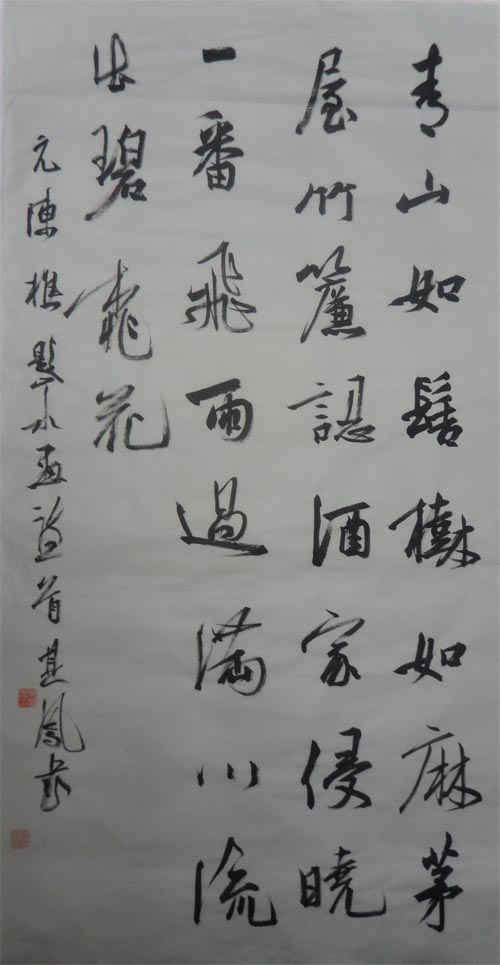 青山如髻樹如麻茅
屋竹簾認酒家侵曉
一番飛雨過滿川流
出碧桃花
元陳樵題山水畫詩首鳳書